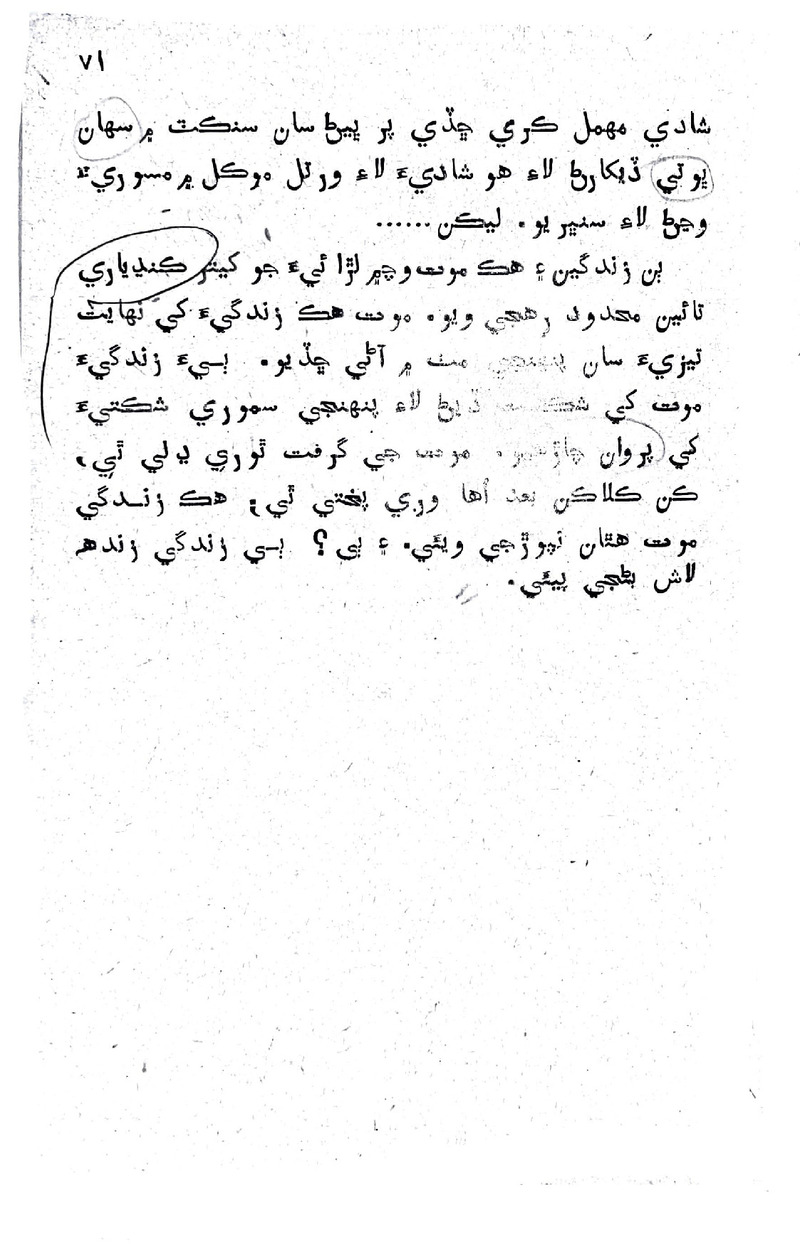 ۷۱
شادي مهمل ڪري ڇڏي پر ڀيڻ سان سنڪٽ ۾ سهان
ڀوتي ڏيکارڻ لاءِ هو شاديءَ لاءِ ورتل موڪل ۾ مسوريءَ
وڃڻ لاءِ سنڀريو. ليڪن......
ٻن زندگين ۽ هڪ موت وچ ۾ لڙائيءَ جو کيتر ڪنڊياري
تائين محدود رهجي ويو. موت هڪ زندگيءَ کي نهايت
تيزيءَ سان پنهنجي مٺ ۾ آڻي ڇڏيو. ٻيءَ زندگيءَ
موت کي شڪست ڏيڻ لاءِ پنهنجي سموري شڪتيءَ
کي پروان چاڙهيو. موت جي گرفت ٿوري ڍلي ٿي،
ڪن ڪلاڪن بعد اُها وري پختي ٿي؛ هڪ زندگي
موت هٿان نپوڙجي ويئي. ۽ ٻي؟ ٻي زندگي زندهه
لاش بڻجي پيئي.